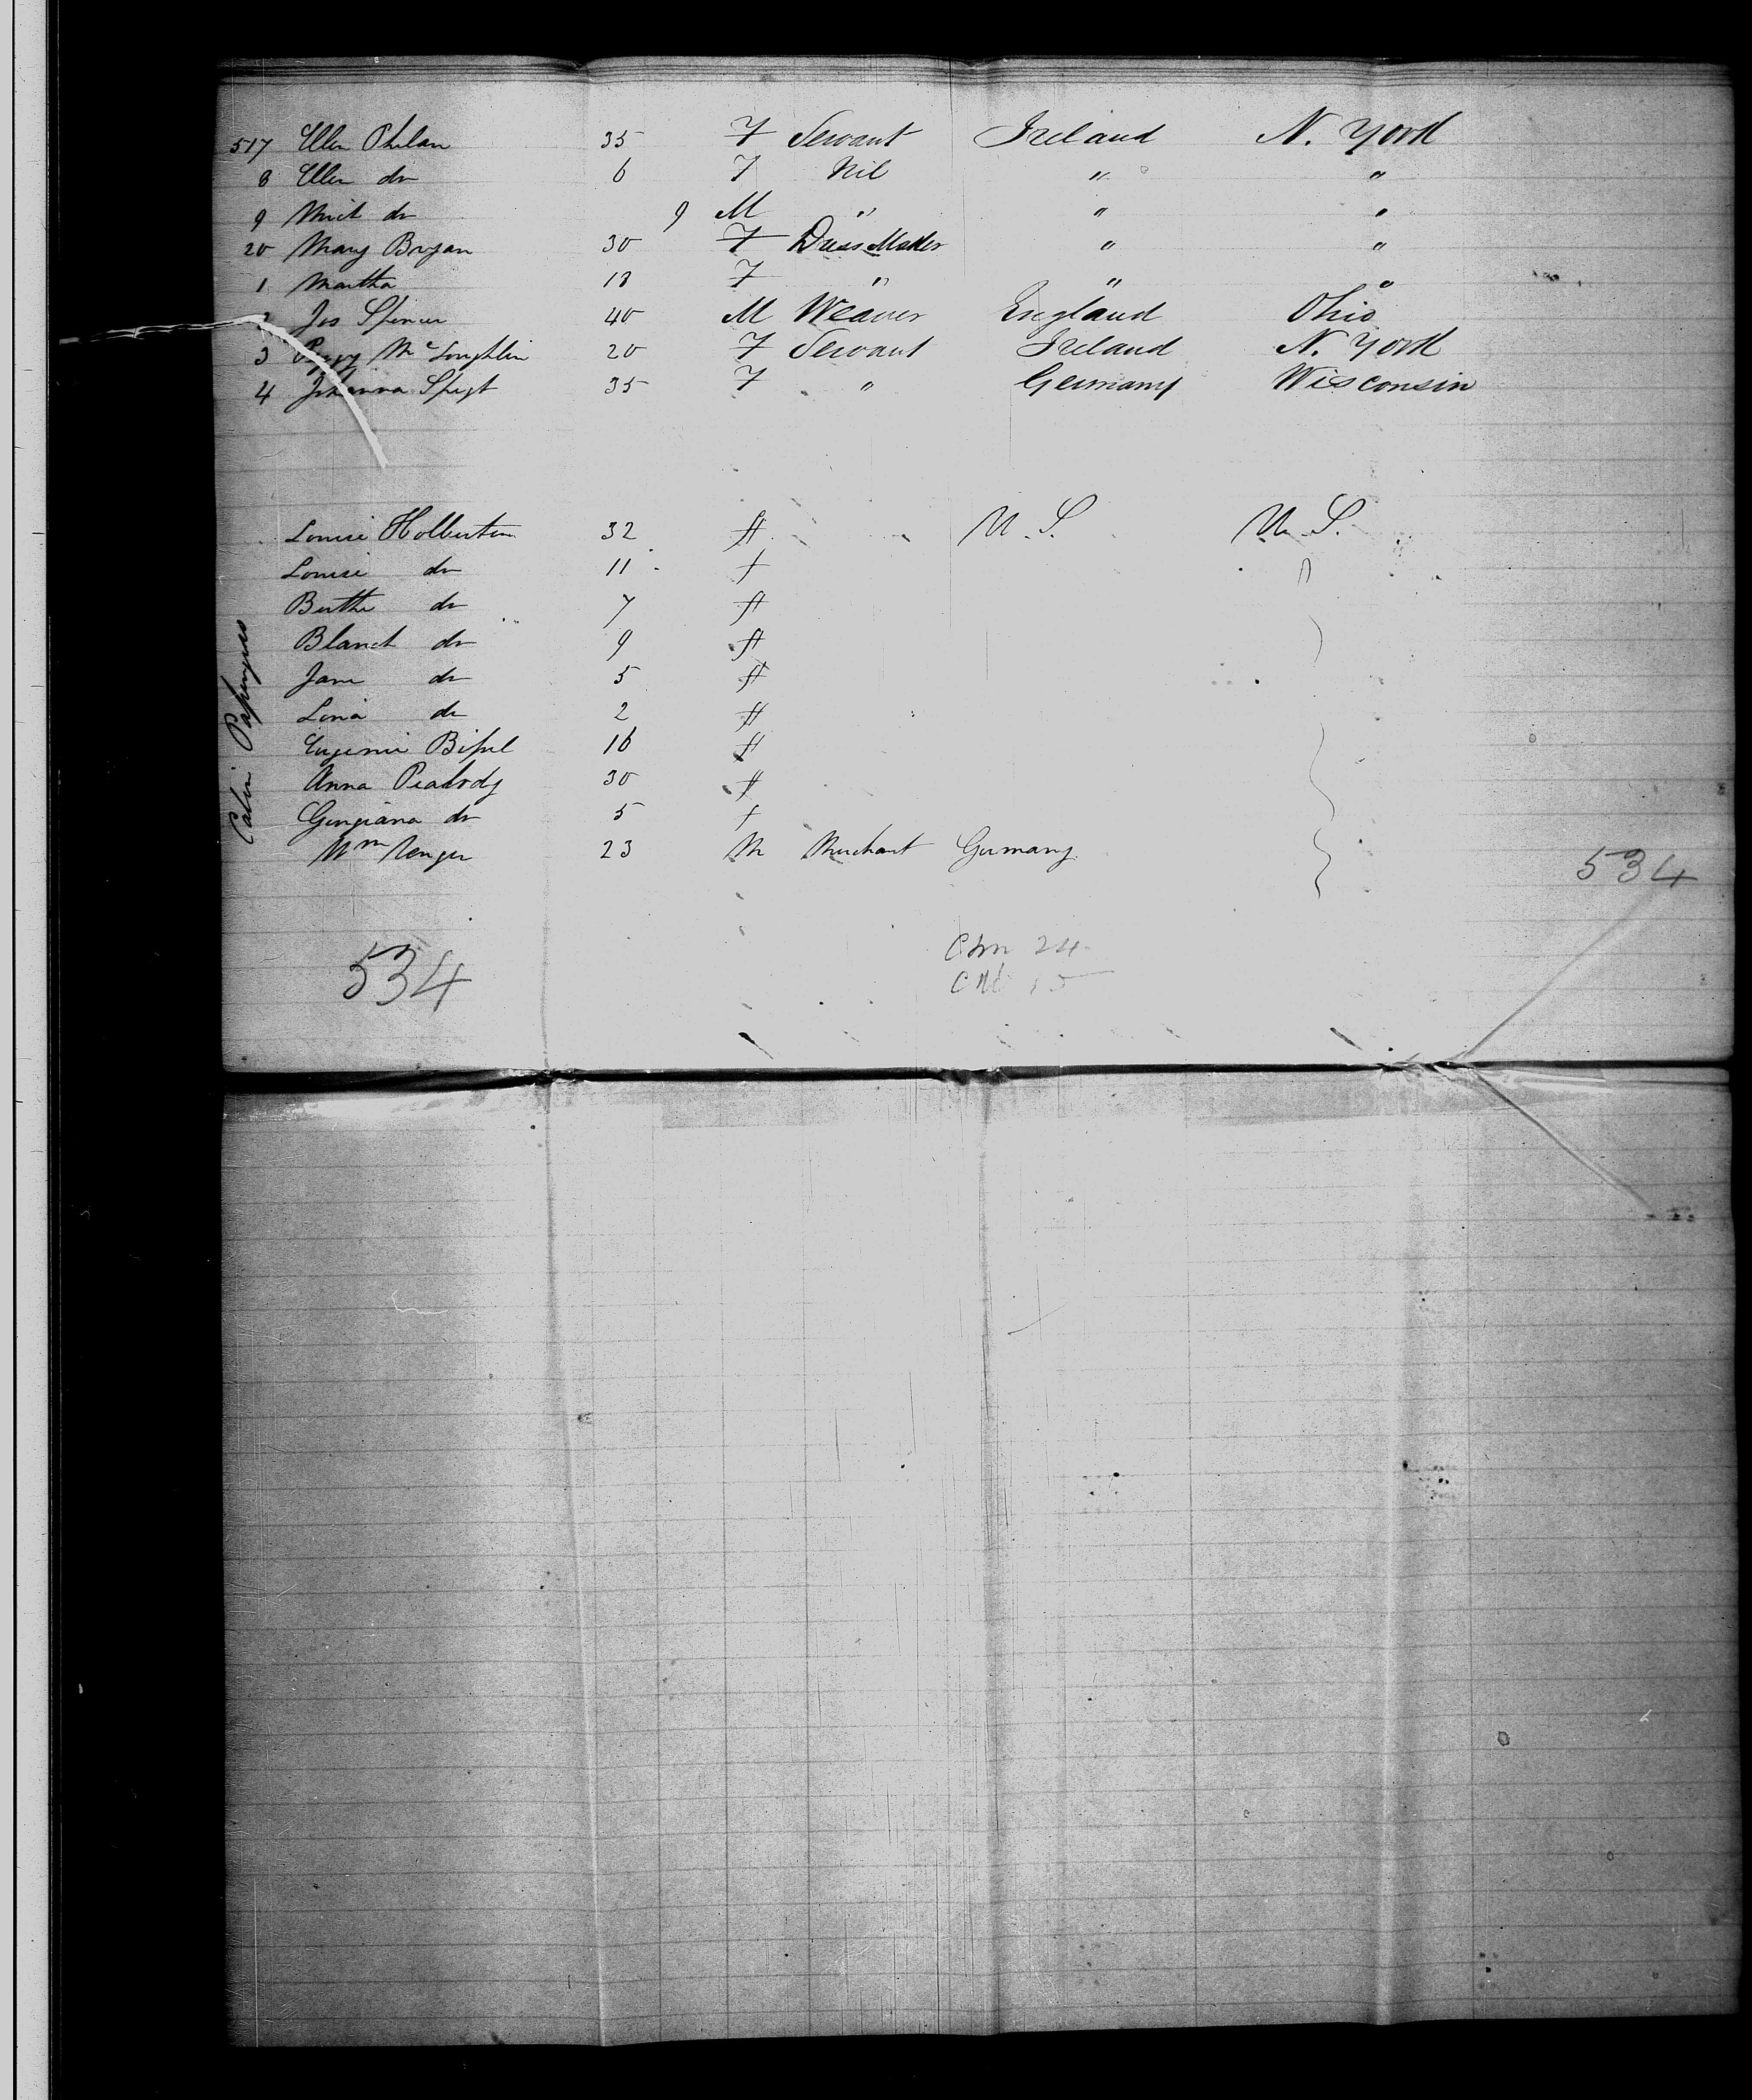 517 Ellen Phelan 35 F Servant Ireland N. York
8 Ellen do 6 F Nil " "
9 Mich do 9 M " " "
20 Mary Bryan 30 F Dress Maker " "
1 Martha 18 F " " "
2 Jos Spencer 40 M Weaver England Ohio
3 Peggy McLoughlin 20 F Servant Ireland N. York
4 Johanna 35 F " Germany Wisconsin
Cabin Passengers
Louise Holberton 32 f U. S. U. S.
Louise do 11 f
Bertha do 7 f
Blanch do 9 f
Jane do 5 f
do 2 f
Eugenie 16 f
Anna Peabody 30 f
Georgiana do 5 f
Wm 23 M Merchant Germany
534
534
24